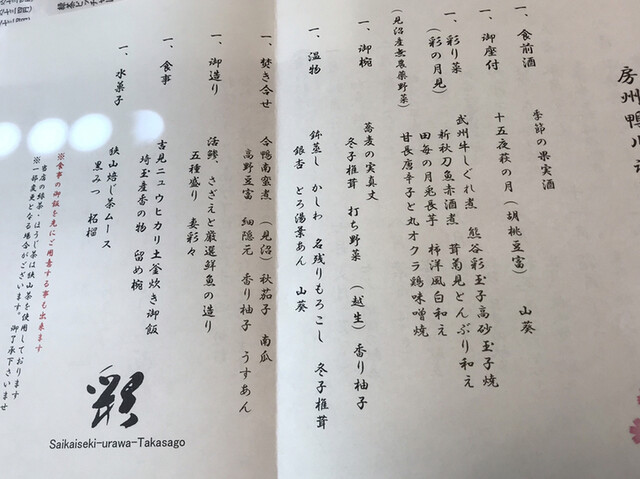 房州鴨川
一、食前酒 季節の果実酒
一、御座付 十五夜萩の月（胡桃豆富） 山葵
一、彩り菜 武州牛しぐれ煮 熊谷彩玉子高砂玉子焼
（彩の月見） 新秋刀魚赤酒煮 茸菊見とんぶり和え
田毎の月兎長芋 柿洋風白和え
（見沼産無農薬野菜） 甘長唐辛子と丸オクラ鶏味噌焼
一、御椀 蕎麦の実真丈
冬子椎茸 打ち野菜 （越生）香り柚子
一、温物 鉢蒸し かしわ 名残りもろこし 冬子椎茸
銀杏 とろ湯葉あん 山葵
一、焚き合せ 合鴨南蛮煮 （見沼）秋茄子 南瓜
高野豆富 細隠元 香り柚子 うすあん
一、御造り 活鯵、さざえと厳選鮮魚の造り
五種盛り 妻彩々
一、食事 吉見ニュウヒカリ土釜炊き御飯
埼玉産香の物 留め椀
一、水菓子 狭山焙じ茶ムース
黒みつ 柘榴
※食事の御飯を先にご用意する事も出来ます
当店の緑茶・ほうじ茶は狭山茶を使用しております
※一部変更となる場合がございます。御了承下さいませ
彩
Saikaiseki-urawa-Takasago